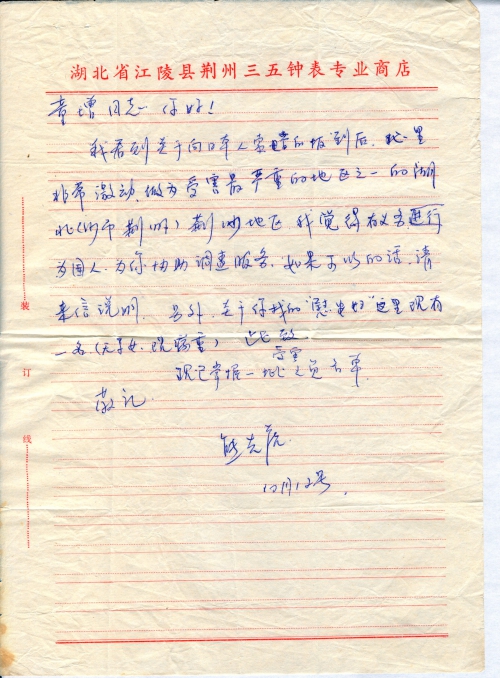 湖北省江陵县荆州三五钟表专业商店
童增同志:你好!
我看到关于向日本人索赔的报到后,心里
非常激动,做为受害最严重的地区之一的湖
北(沙市荆州)荆沙地区,我觉得有义务
为国人、为你协助调速服务,如果可以的话,请
来信说明。另外,关于你找的"慰安妇"这里现有
一名(无子女、现病重) 此致
现已掌握一批受害人员名单
敬礼
10月12号
装
订
线